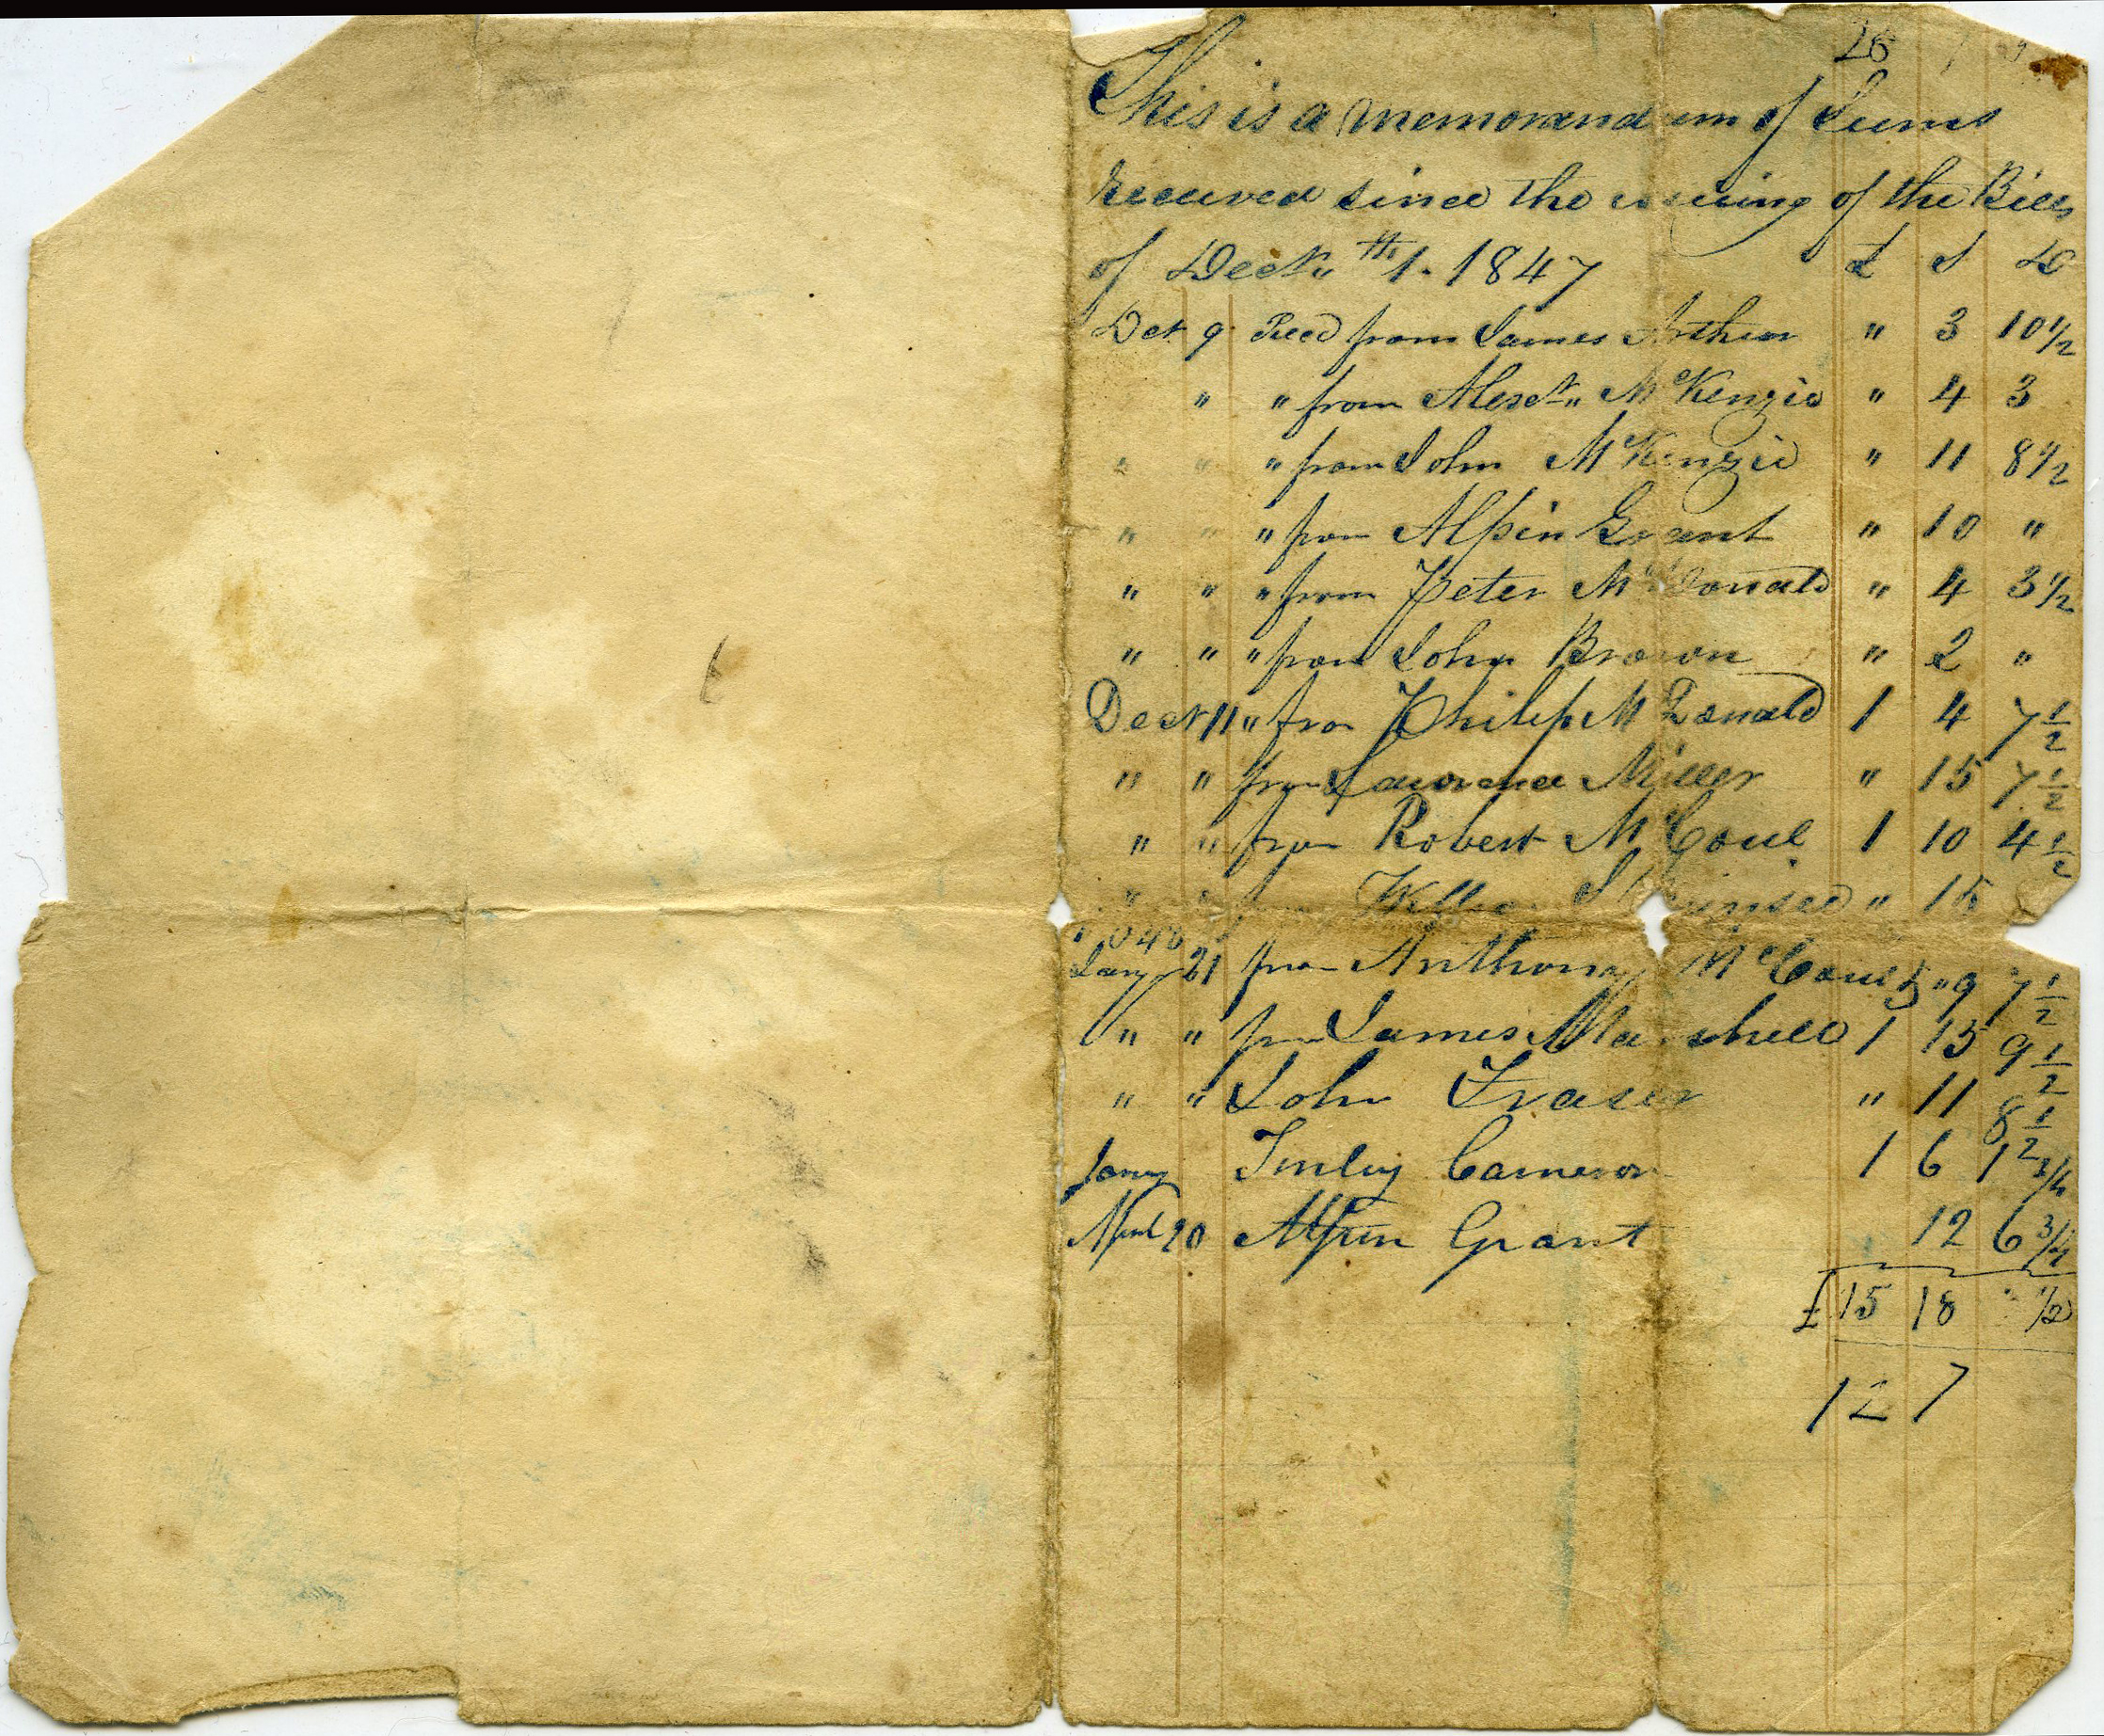 26
This is a memorandum of Sums
Received since the issuing of the Bills
of Decr„ th 1. 1847 £ S D
Decr 9 Recd from James Arthur " 3 10 1/2
" " from Alexr„ McKenzie " 4 3
" " " from John McKenzie " 11 8 1/2
" " " from Alpin Grant " 10 "
" " " from Peter McDonald " 4 3 1/2
" " " from John Brown " 2 "
Decr 11 " from Philip McDonald 1 4 7 1/2
" " from Lawrence Miller " 15 7 1/2
" " from Robert McCoul 1 10 4 1/2
" " from " 15
1848
Jany 21 from Anthony McCoul 5 " 9 7 1/2
" " from James Marshell 1 15 9 1/2
" " John Fraser " 11 8 1/2
Jany Finley Cameron 1 6 1 3/4
April 20 Alpin Grant 12 6 3/4
£ 15 18 " 1/2
12 7